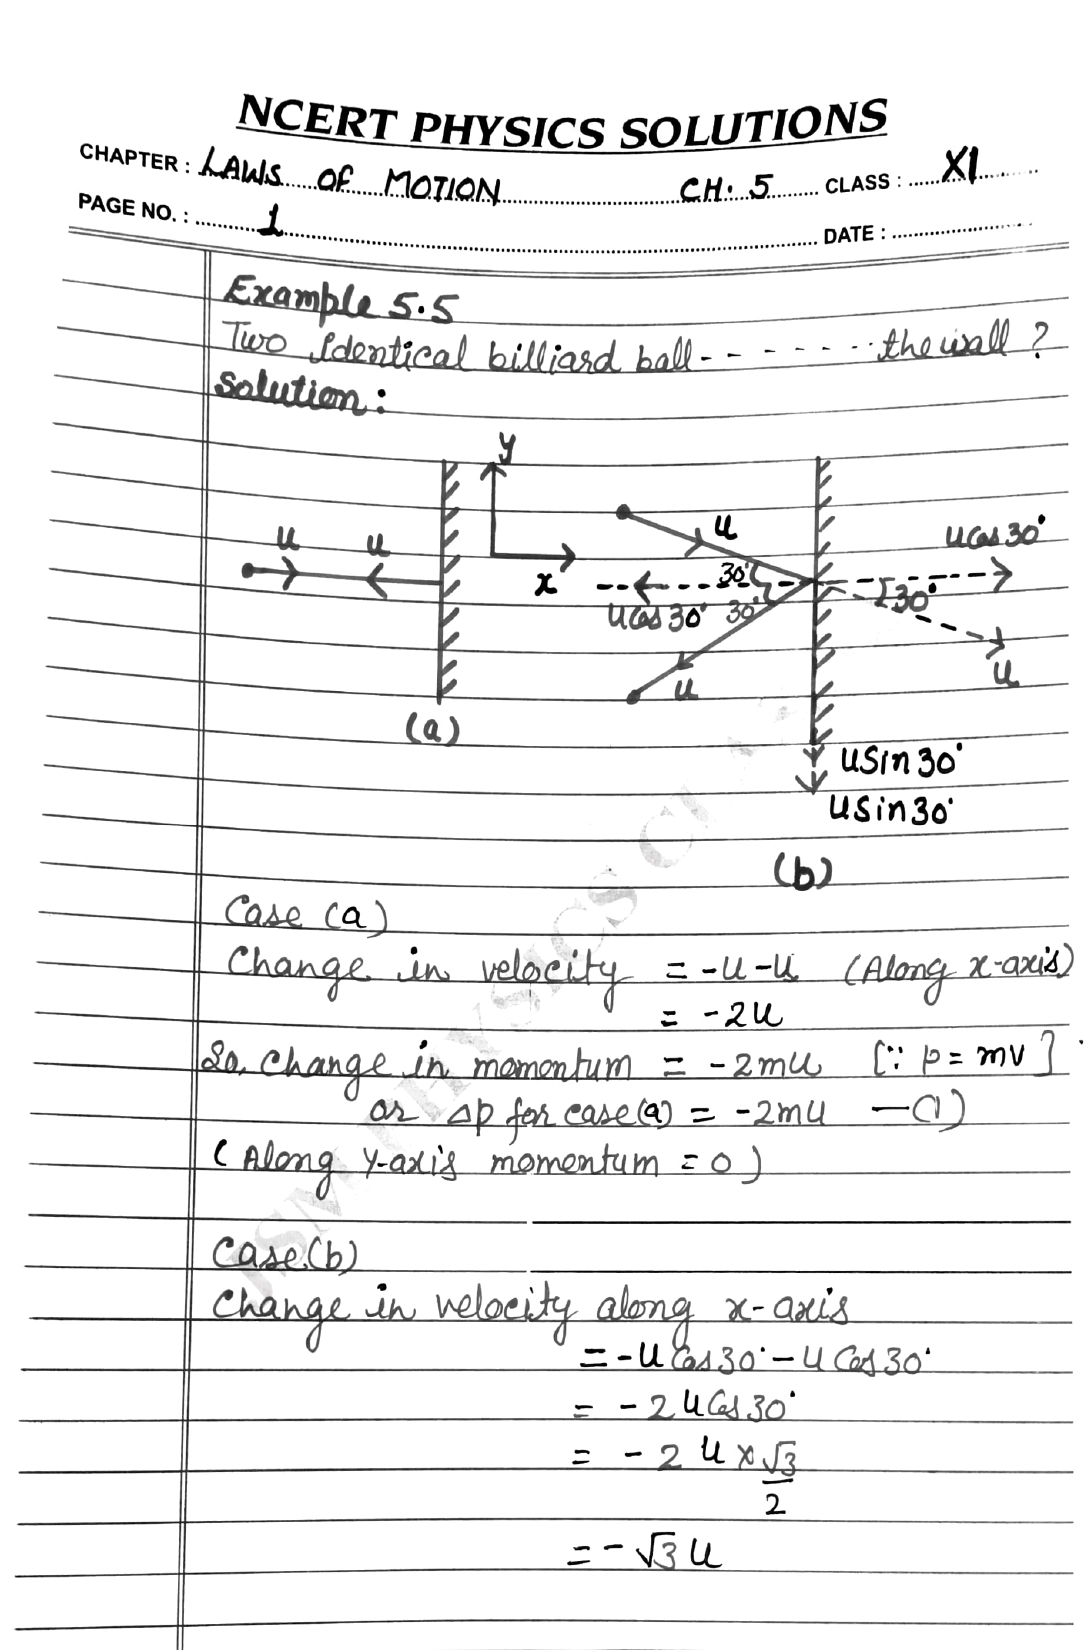 NCERT PHYSICS SOLUTIONS
CHAPTER : LAWS OF MOTION CH. 5 CLASS : XI
PAGE NO. : 1 DATE :
Example 5.5
Two Identical billiard ball - - - - - - - - - the wall ?
Solution :
y
u
u
x
u
30°
u cos 30°
30°
u
u cos 30°
30°
u
(a)
u sin 30°
u sin 30°
(b)
Case (a)
Change in velocity = -u - u (Along x-axis)
= -2u
So, Change in momentum = -2mu [∵ p = mv]
or Δp for case(a) = -2mu —(1)
(Along y-axis momentum = 0)
Case(b)
Change in velocity along x-axis
= -u Cos 30° - u Cos 30°
= - 2 u Cos 30°
= - 2 u × √3/2
= - √3 u